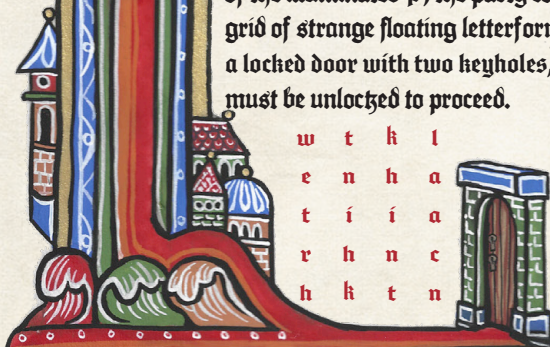 grid of strange floating letterfor
a locked door with two keyholes,
must be unlocked to proceed.
w t k l
e n h a
t i i a
r h n c
h k t n